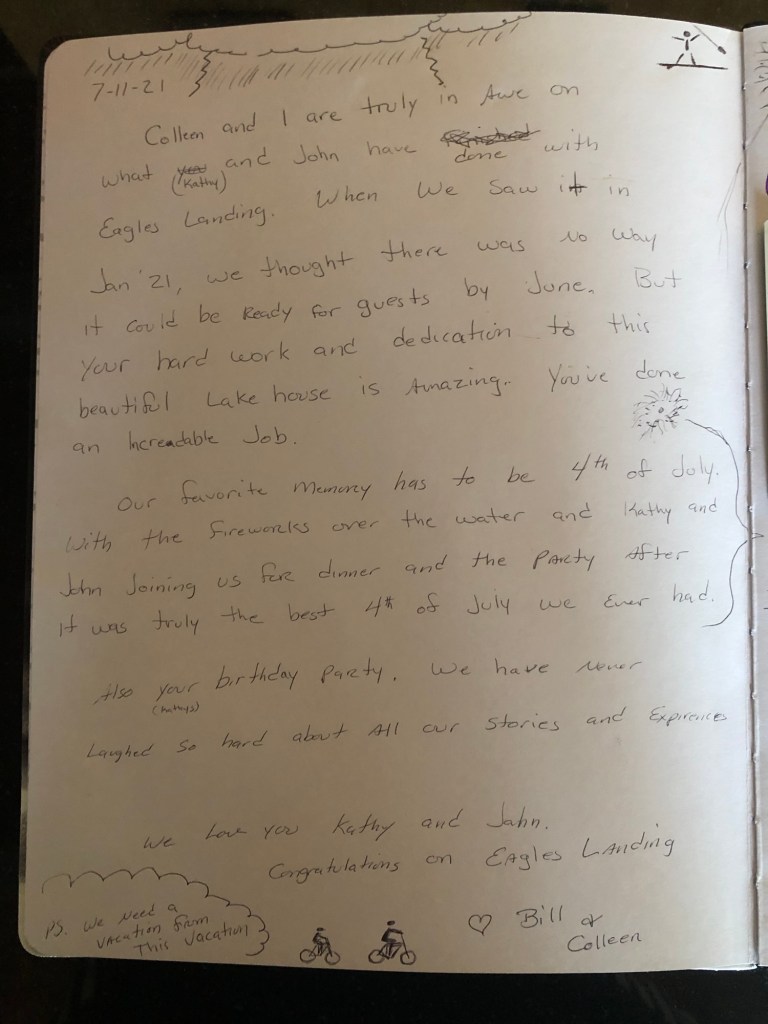 7-11-21
Colleen and I are truly in Awe on
what you (Kathy) and John have finished done with
Eagles Landing. When We Saw it in
Jan '21, we thought there was No Way
it could be Ready for guests by June. But
your hard work and dedication to this
beautiful Lake house is Amazing. You've done
an Increadable Job.
Our favorite Memory has to be 4th of July.
With the fireworks over the water and Kathy and
John Joining us for dinner and the Party After
It was truly the best 4th of July we Ever had.
Also your (Kathys) birthday Party. We have Never
Laughed So hard about All our Stories and Expirences
We Love you Kathy and John.
Congratulations on Eagles Landing
PS. We Need a
Vacation from
This Vacation
♡ Bill &
Colleen